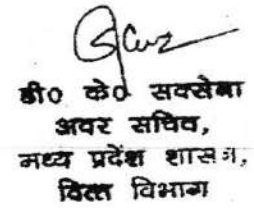 डी० के० सक्सेना
अवर सचिव,
मध्य प्रदेश शासन,
वित्त विभाग